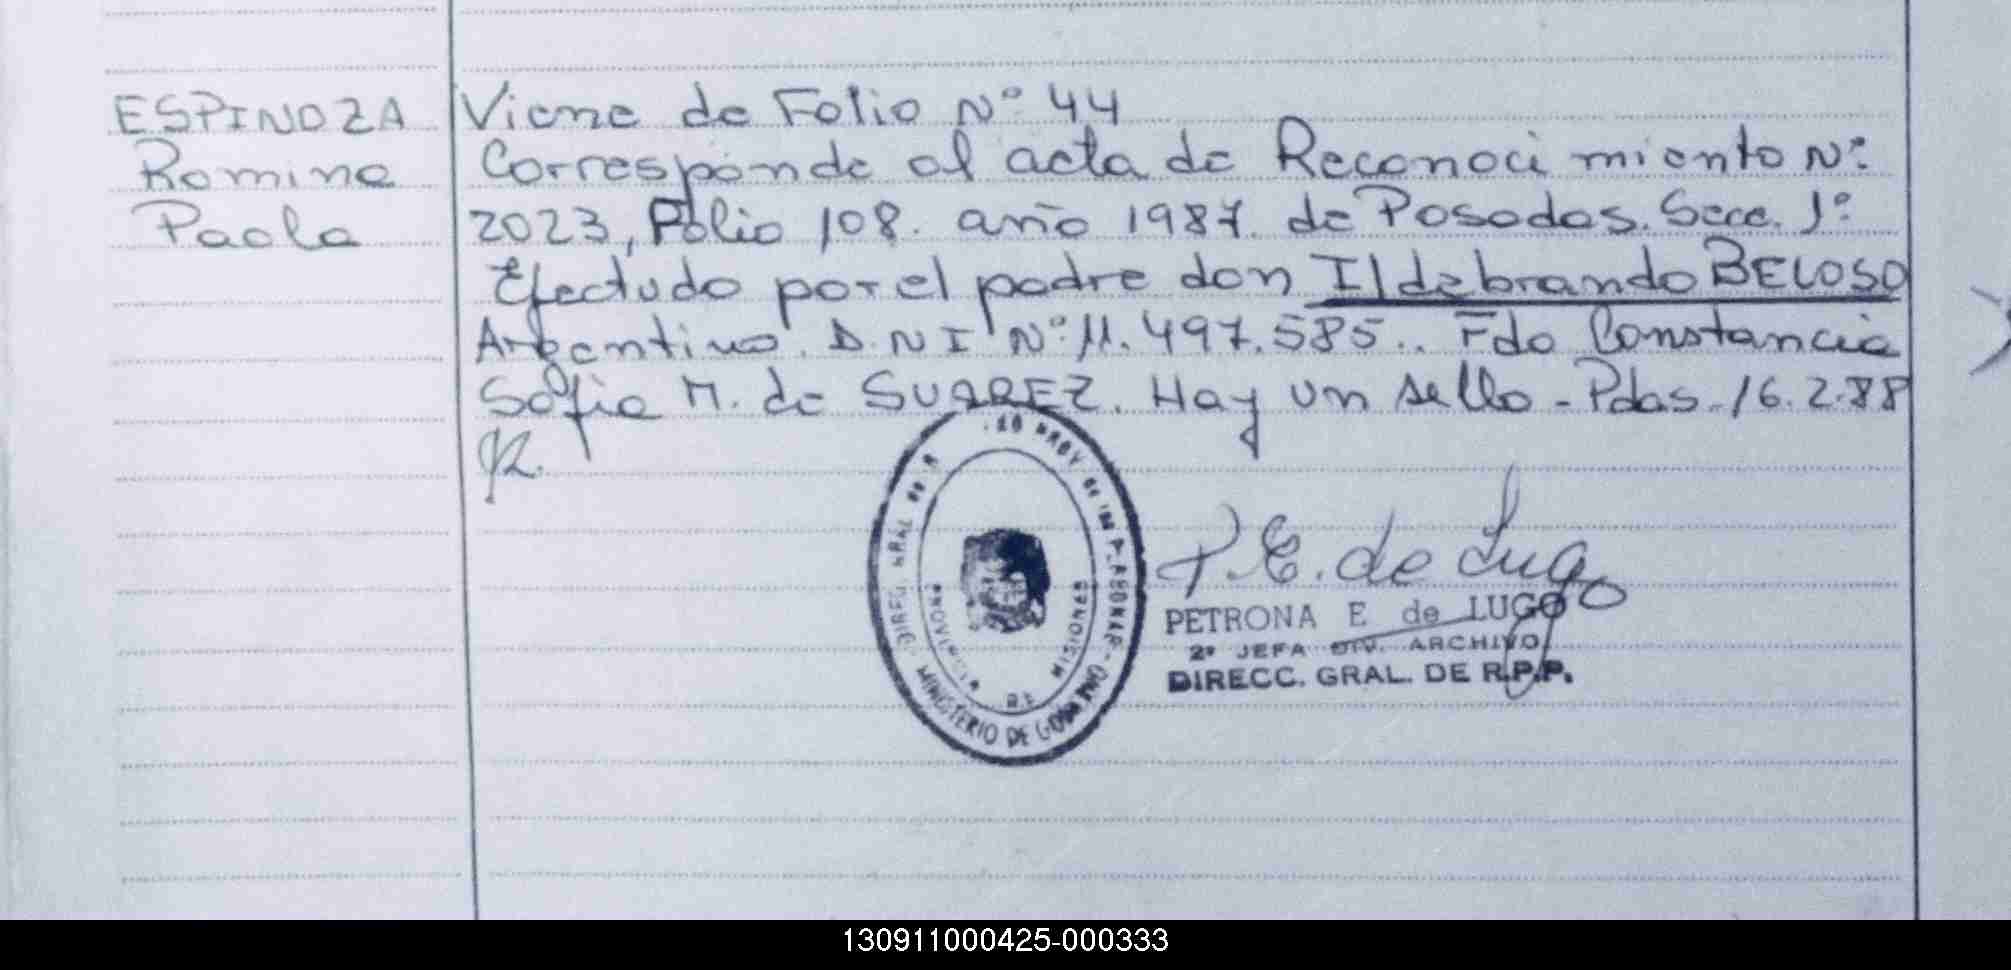 ESPINOZA
Romina
Paola
Viene de Folio Nº 44
Corresponde al acta de Reconoci miento Nº
2023, Folio 108. año 1987. de Posadas. Secc. 1º
Efectudo por el padre don Ildebrando BELOSO
Argentino. D.N I Nº 11.497.585.. Fdo Constancia
Sofia M. de SUAREZ. Hay un sello - Pdas. 16.2.88
MINISTERIO DE GOBIERNO
PROVINCIA DE MISIONES
P. E. de Lugo
PETRONA E de LUGO
2º JEFA DIV. ARCHIVO
DIRECC. GRAL. DE R.P.P.
130911000425-000333